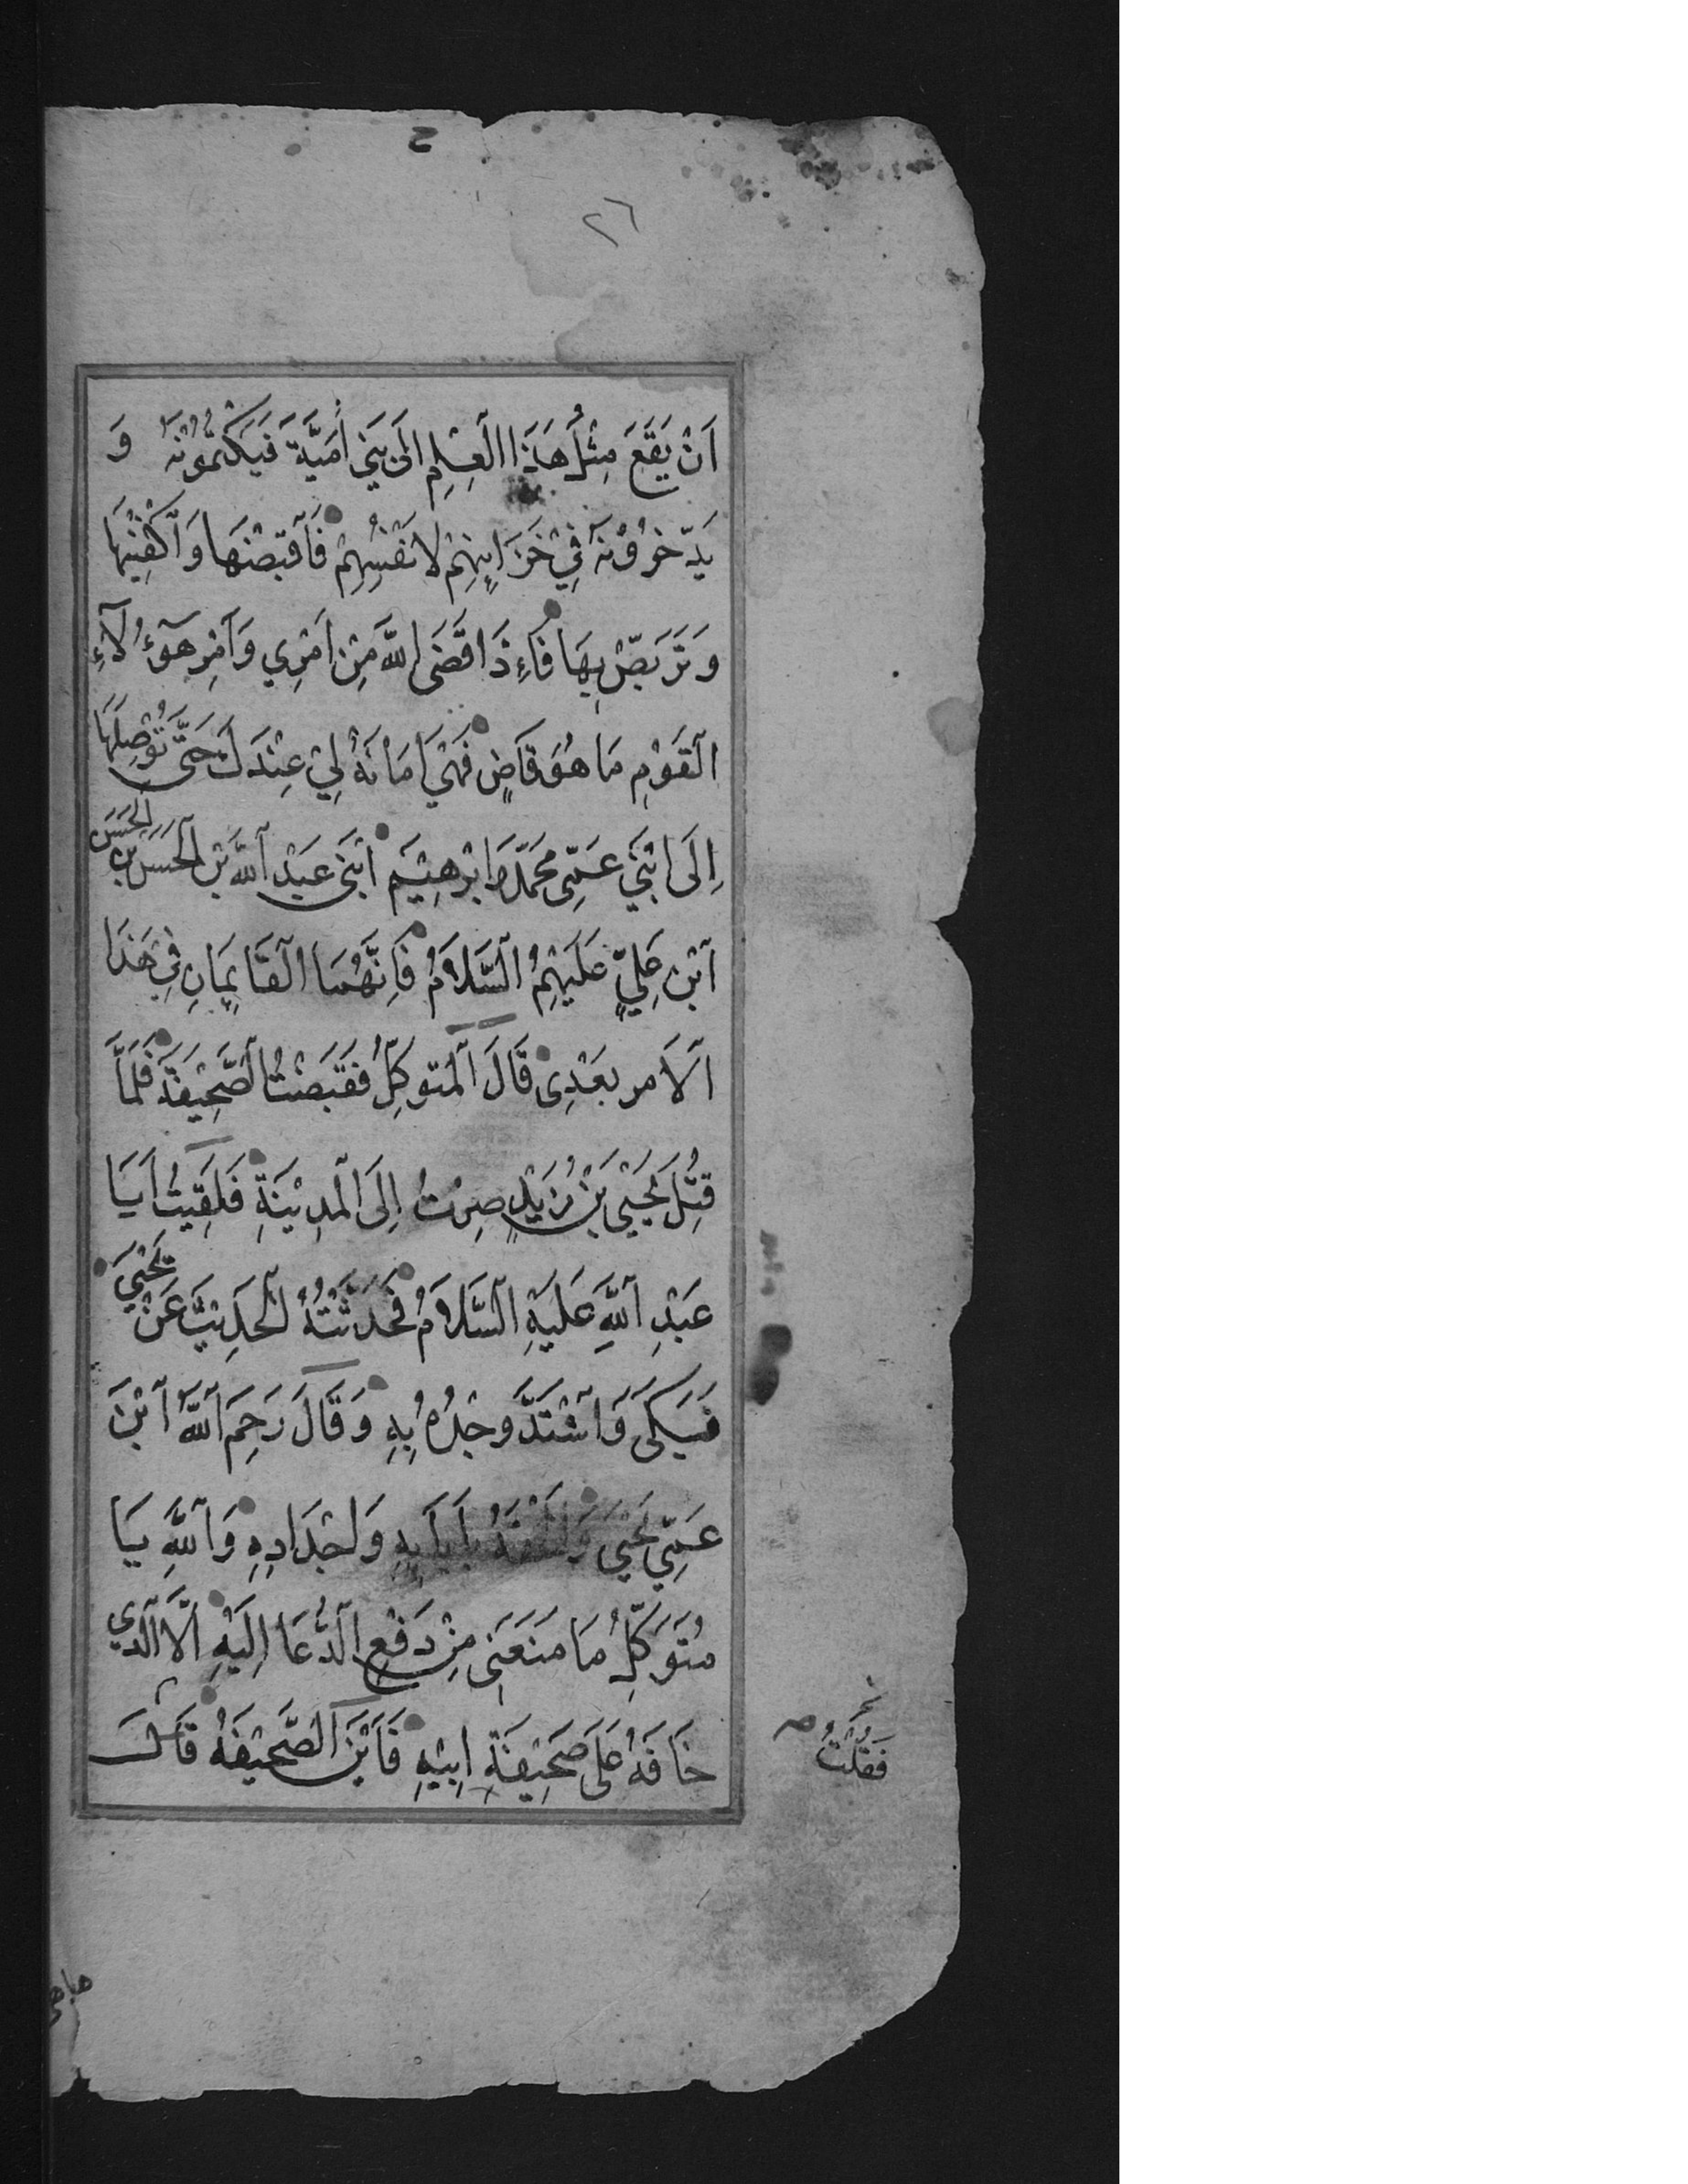 ٢٦
اَنْ يَقَعَ مِثْلُ هَذَا الْعِلْمِ اِلَى بَنِي اُمَيَّةَ فَيَكْتُمُوْنَهُ وَ
يَدَّخِرُوْنَهُ فِيْ خَزَايِنِهِمْ لِاَنْفُسِهِمْ فَاَقْبِضْهَا وَاَكْفِنِيْهَا
وَتَرَبَّصْ بِهَا فَاِذَا قَضَى اللَّهُ مِنْ اَمْرِي وَاَمْرِ هَؤُلَآءِ
الْقَوْمِ مَا هُوَ قَاضٍ فَهِيَ اَمَانَةٌ لِيْ عِنْدَكَ حَتَّى تُوْصِلَهَا
اِلَى ابْنَيْ عَمِّى مُحَمَّدٍ وَ اِبْرهِيْمَ ابْنَىْ عَبْدِ اللَّهِ بْنِ الْحَسَنِ بْنِ الْحَسَنِ
ابْنِ عَلِيٍّ عَلَيْهِمُ السَّلاَمُ فَاِنَّهُمَا الْقَايِمَانِ فِي هَذَا
الْاَمر بَعْدِىْ قَالَ الْمُتوكِّلُ فَقَبَضْتُ الصَّحِيْفَةَ فَلَمَّا
قُتِلَ يَحْيَى بْنُ زَيْدٍ صِرْتُ اِلَى الْمَدِيْنَةِ فَلَقِيْتُ اَبَا
عَبْدِ اللَّهِ عَلَيْهِ السَّلاَمُ فَحَدَّثْتُهُ الْحَدِيْثَ عَنْ يَحْيَى
فَبَكَى وَاشْتَدَّ وَجْدُهُ بِهِ وَقَالَ رَحِمَ اللَّهُ ابْنَ
عَمِّي يَحْيَى وَاَلْحَقَهُ بِاَبَايِهِ وَاَجْدَادِهِ وَاللَّهِ يَا
مُتَوَكِّلُ مَا مَنَعَنِى مِنْ دَفْعِ الدُّعَا اِلَيْهِ اِلَّا الَّذِي
خَافَهُ عَلَى صَحِيْفَةِ اَبِيْهِ فَاَيْنَ الصَّحِيْفَةُ قَالَ
فَقُلْتُ